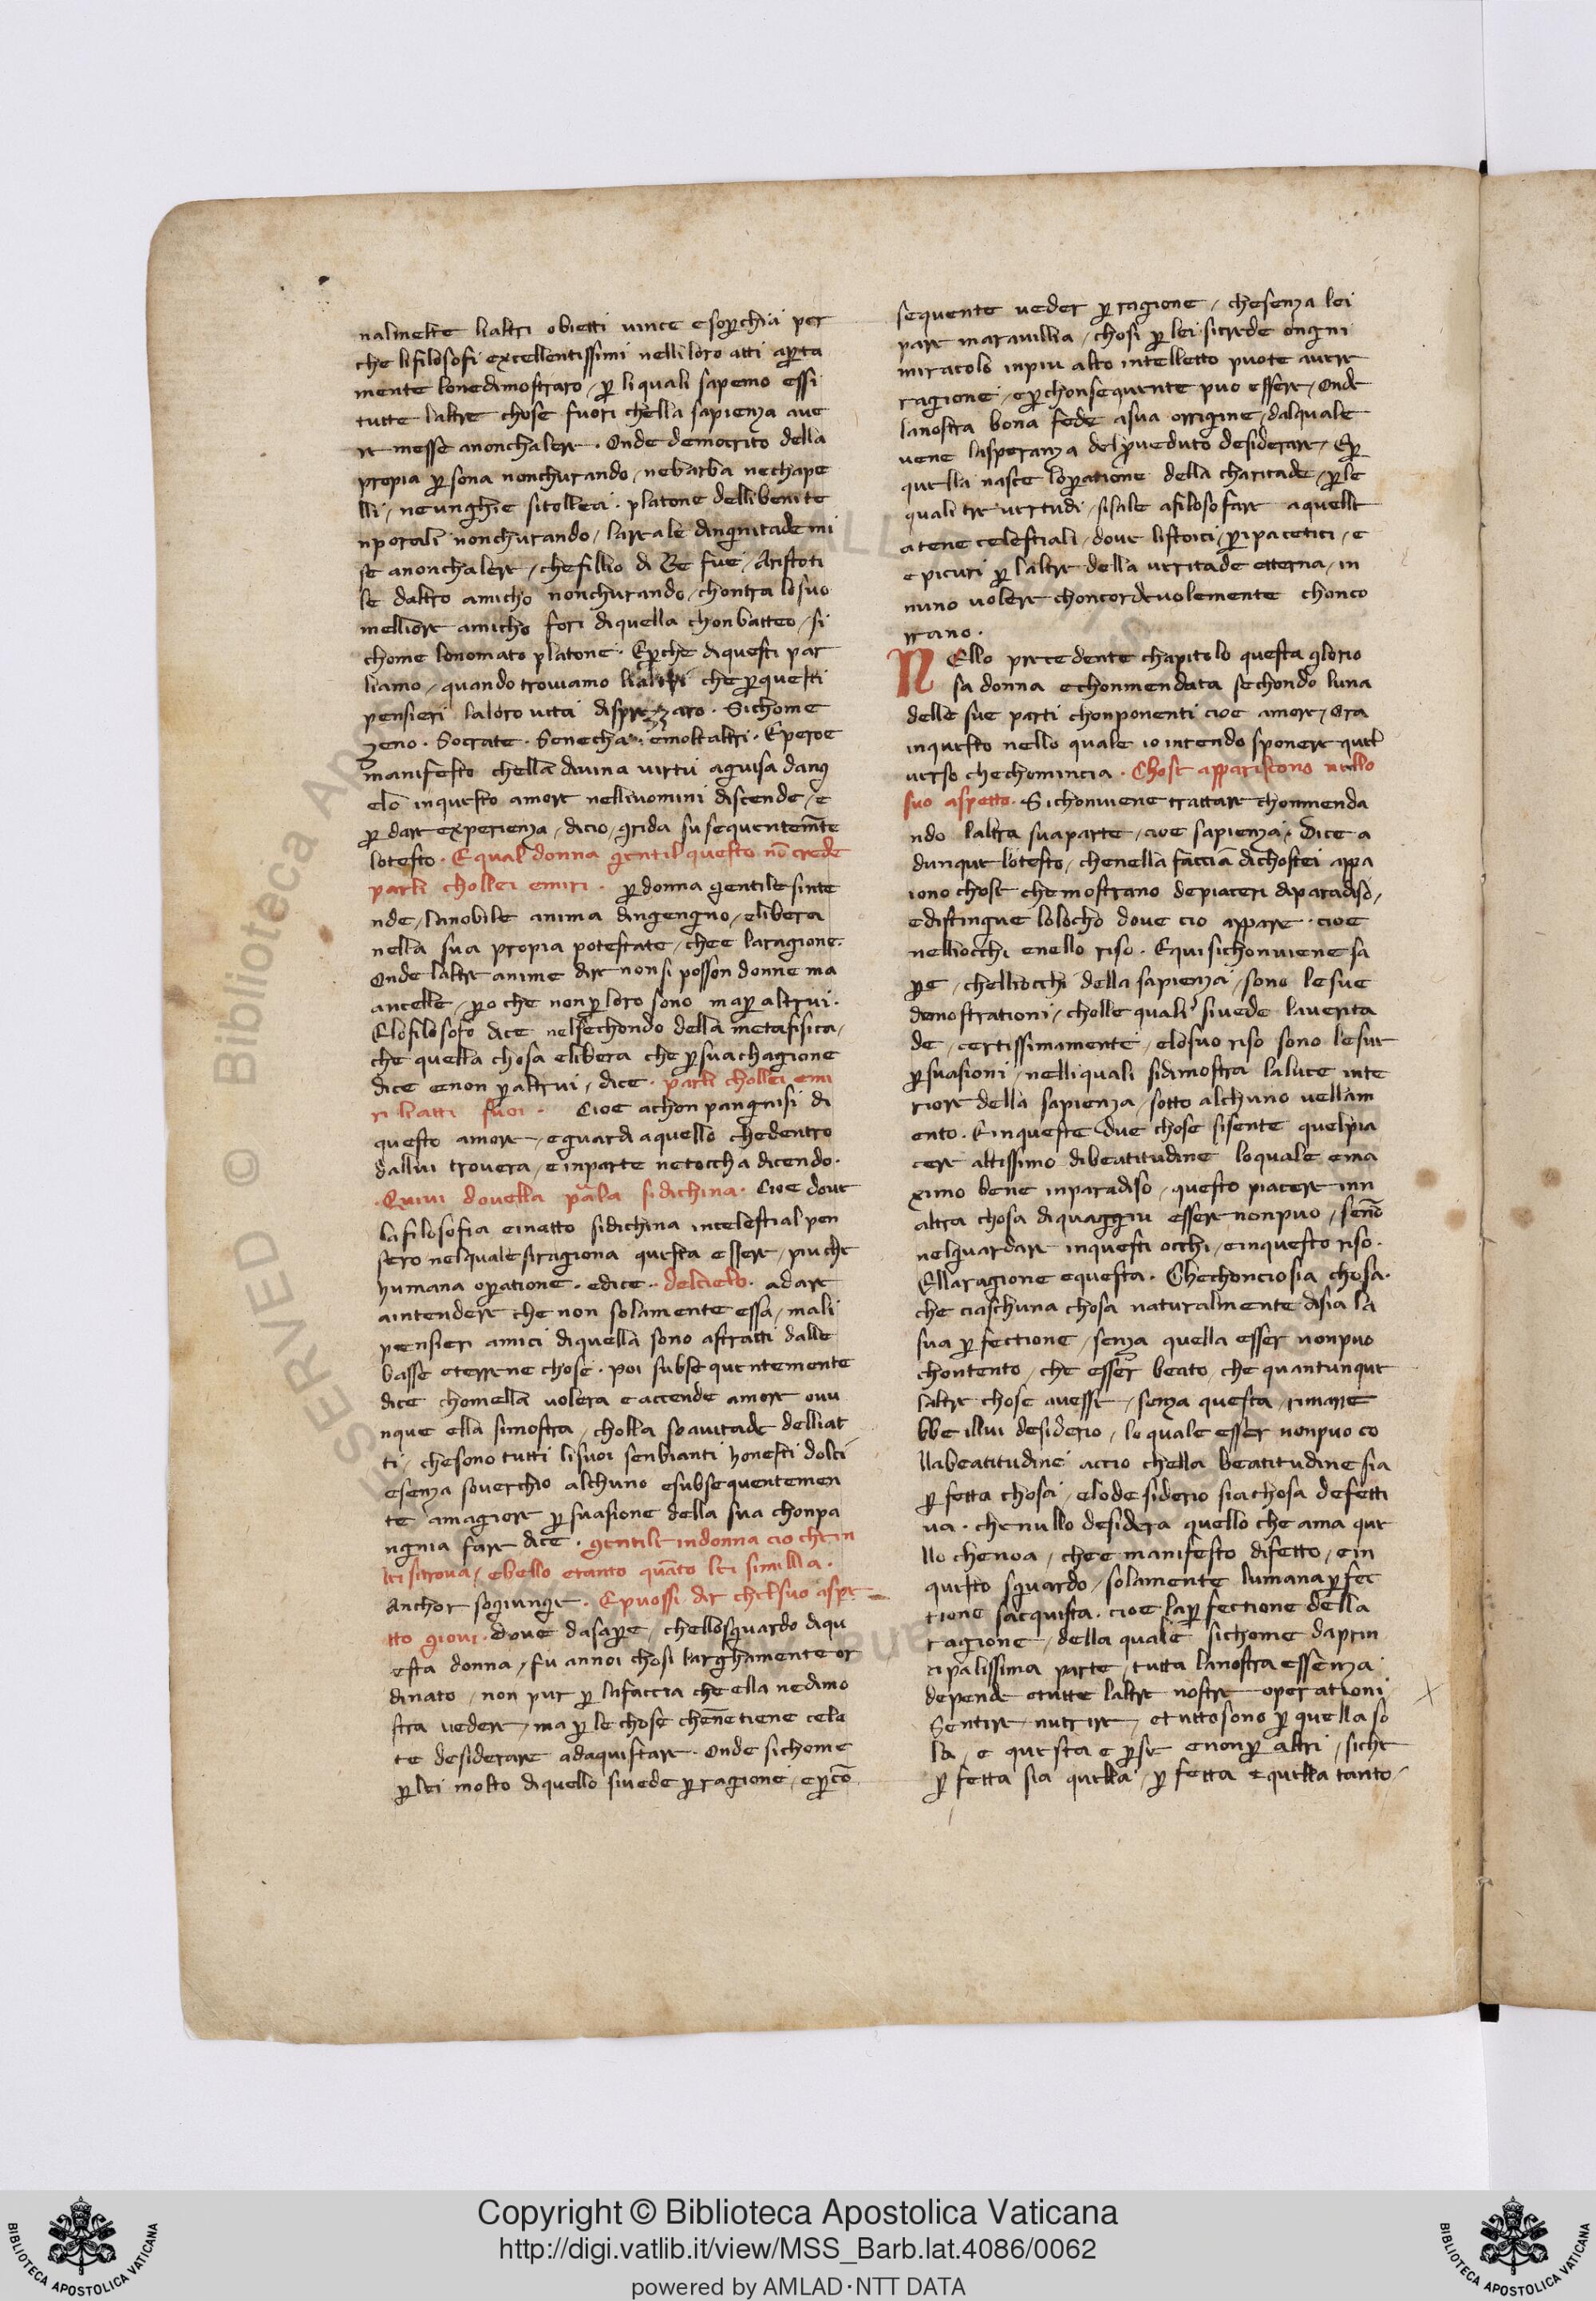 nalmente laltri obietti vince esoperchia per
che lifilosofi excellentissimi nelliloro atti aperta
mente lonedimostraro / per liquali sapemo essi
tutte laltre chose fuori chella sapienza aue
re messe anonchalere . Onde democrito della
propia persona nonchurando / nebarba nechape
lli / neunghie sitollea . platone dellibenite
nporali nonchurando / larrale dingnitademi
se anonchalere / chefillio di Re fue / Aristoti
le daltro amicho nonchurando / chontra losuo
melliore amicho fori diquella chonbatteo / si
chome lonomato platone . Eperche diquesti par
liamo / quando trouiamo lialtri che perquesti
pensieri laloro uita disprezzaro . Sichome
zeno . Socrate . Senecha . emoltaltri . Eperoe
manifesto chella diuina uirtu aguisa dang
elo inquesto amore nelliuomini discende / e
per dare experienza / dicio / grida susequentemēte
lotesto . Equal donna gentil questo nō crede
parli chollei emiri . per donna gentilesinte
nde / lanobile anima dingengno / elibera
nella sua propia potestate / chee laragione .
Onde laltre anime dir nonsi posson donne ma
ancelle / pero che non per loro sono maper altrui .
Elofilosofo dice nelsechondo della metafisica /
che quella chosa elibera che persuachagione
dice enon peraltrui / dice . parli chollei emi
ri liatti suoi . Cioe achonpangnisi di
questo amore / eguardi aquello chedentro
dallui trouera / e inparte netoccha dicendo .
. Quiui douella parla sidichina . Cioe doue
lafilosofia einatto sidichina incelestialpen
sero nelqualesiragiona questa essere / piuche
humana operatione . edice . delcielo . adare
aintendere che non solamente essa / mali
pensieri amici diquella sono astratti dalle
basse eterrene chose . poi subsequentemente
dice chomella uolera eaccende amore ouu
nque ella simostra / cholla soauitade delliat
ti / chesono tutti lisuoi senbianti honesti dolci
esenza souerchio alchuno esubsequentemen
te amagiore persuasione della sua chonpa
ngnia fare dice . gentile indonna cio chein
lei sitroua / ebello etanto quāto lei similla .
Anchor sogiunge . Epuossi dir chelsuo aspe
tto gioui . doue dasapere / chellosguardo diqu
esta donna / fu annoi chosi larghamente or
dinato / non pur per lafaccia che ella nedimo
stra uedere / ma per le chose chēnetiene cela
te desiderare adaquistare . Onde sichome
per lei molto diquello siuede perragione / epercō
sequente ueder perragione / chesenza lei
pare marauillia / chosi per lei sicrede ongni
miracolo inpiu alto intelletto puote auere
ragione / eperchonsequente puo essere / Onde
lanostra bona fede asua origine / dalquale
uene lasperanza delproueduto desiderare / Eper
quella nasce loperatione della charitade / perle
quali tre uertudi / sisale afilosofare aquelle
atene celestiali / doue listoici / peripacetici / e
epicuri per laltre della ueritade etterna / in
nuno uolere choncordeuolemente choncо
rrano .
NEllo precedente chapitolo questa glorio
sa donna echonmendata sechondo luna
delle sue parti chonponenti cioe amore / Ora
inquesto nello quale io intendo sponere quel
uerso chechomincia . Chose appariscono nello
suo aspetto . Sichonuiene trattare chonmenda
ndo laltra suaparte / cioe sapienza . Dice a
dunque lotesto / chenella faccia dichostei appa
iono chose chemostrano depiaceri diparadiso /
edistingue lolocho doue cio appare . cioe
nelliocchi enello riso . Equi sichonuiene sa
pere / chelliocchi della sapienza / sono lesue
demostrationi / cholle quali siuede lauerita
de / certissimamente / elosuo riso sono lesue
persuasioni / nelliquali sidimostra laluce inte
riore della sapienza / sotto alchuno uellam
ento . Einqueste due chose sisente quelpia
cere altissimo dibeatitudine loquale ema
ximo bene inparadiso / questo piacere inn
altra chosa diquaggiu essere nonpuo / senō
nelguardare inquesti occhi / einquesto riso .
Ellaragione equesta . Chechonciosia chosa .
che ciaschuna chosa naturalmente disia la
sua perfectione / senza quella esser nonpuo
chontento / che esser beato / che quantunque
laltre chose auesse / senza questa / rimarre
bbe illui desiderio / lo quale esser nonpuo co
llabeatitudine accio chella beatitudine sia
perfetta chosa / elodesiderio siachosa defetti
ua . chenullo desidera quello che ama que
llo chenoa / chee manifesto difetto / ein
questo sguardo / solamente lumanaperfec
tione sacquista . cioe laperfectione della
ragione / della quale sichome daprin
cipalissima parte / tutta lanostra essenza
depende etutte laltre nostre operationi
Sentire / nutrire / etuttosono per quella so
la / e questa e perse enonper altri / siche
perfetta sia quella / perfetta equella tanto /
Copyright © Biblioteca Apostolica Vaticana
http://digi.vatlib.it/view/MSS_Barb.lat.4086/0062
powered by AMLAD·NTT DATA
BIBLIOTECA APOSTOLICA VATICANA
BIBLIOTECA APOSTOLICA VATICANA